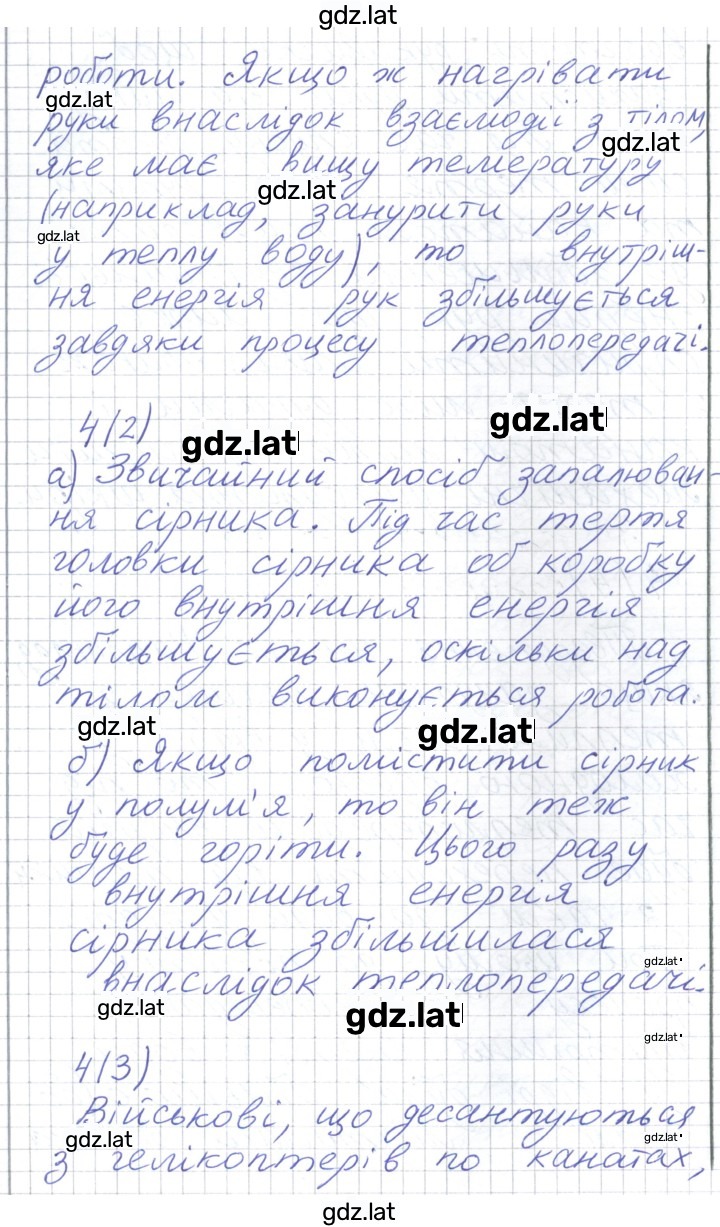 gdz.lat
роботи. Якщо ж нагрівати
gdz.lat
руки внаслідок взаємодії з тілом,
gdz.lat
яке має вищу температуру
gdz.lat
(наприклад, занурити руки
gdz.lat
у теплу воду), то внутріш-
ня енергія рук збільшується
завдяки процесу теплопередачі.
4(2)
gdz.lat
gdz.lat
а) Звичайний спосіб запалюван-
ня сірника. Під час тертя
головки сірника об коробку
його внутрішня енергія
збільшується, оскільки над
тілом виконується робота.
gdz.lat
gdz.lat
б) Якщо помістити сірник
у полум'я, то він теж
буде горіти. Цього разу
внутрішня енергія
сірника збільшилася
gdz.lat
внаслідок теплопередачі.
gdz.lat
gdz.lat
gdz.lat
4(3)
Військові, що десантуються
gdz.lat
gdz.lat
з гелікоптерів по канатах,
gdz.lat